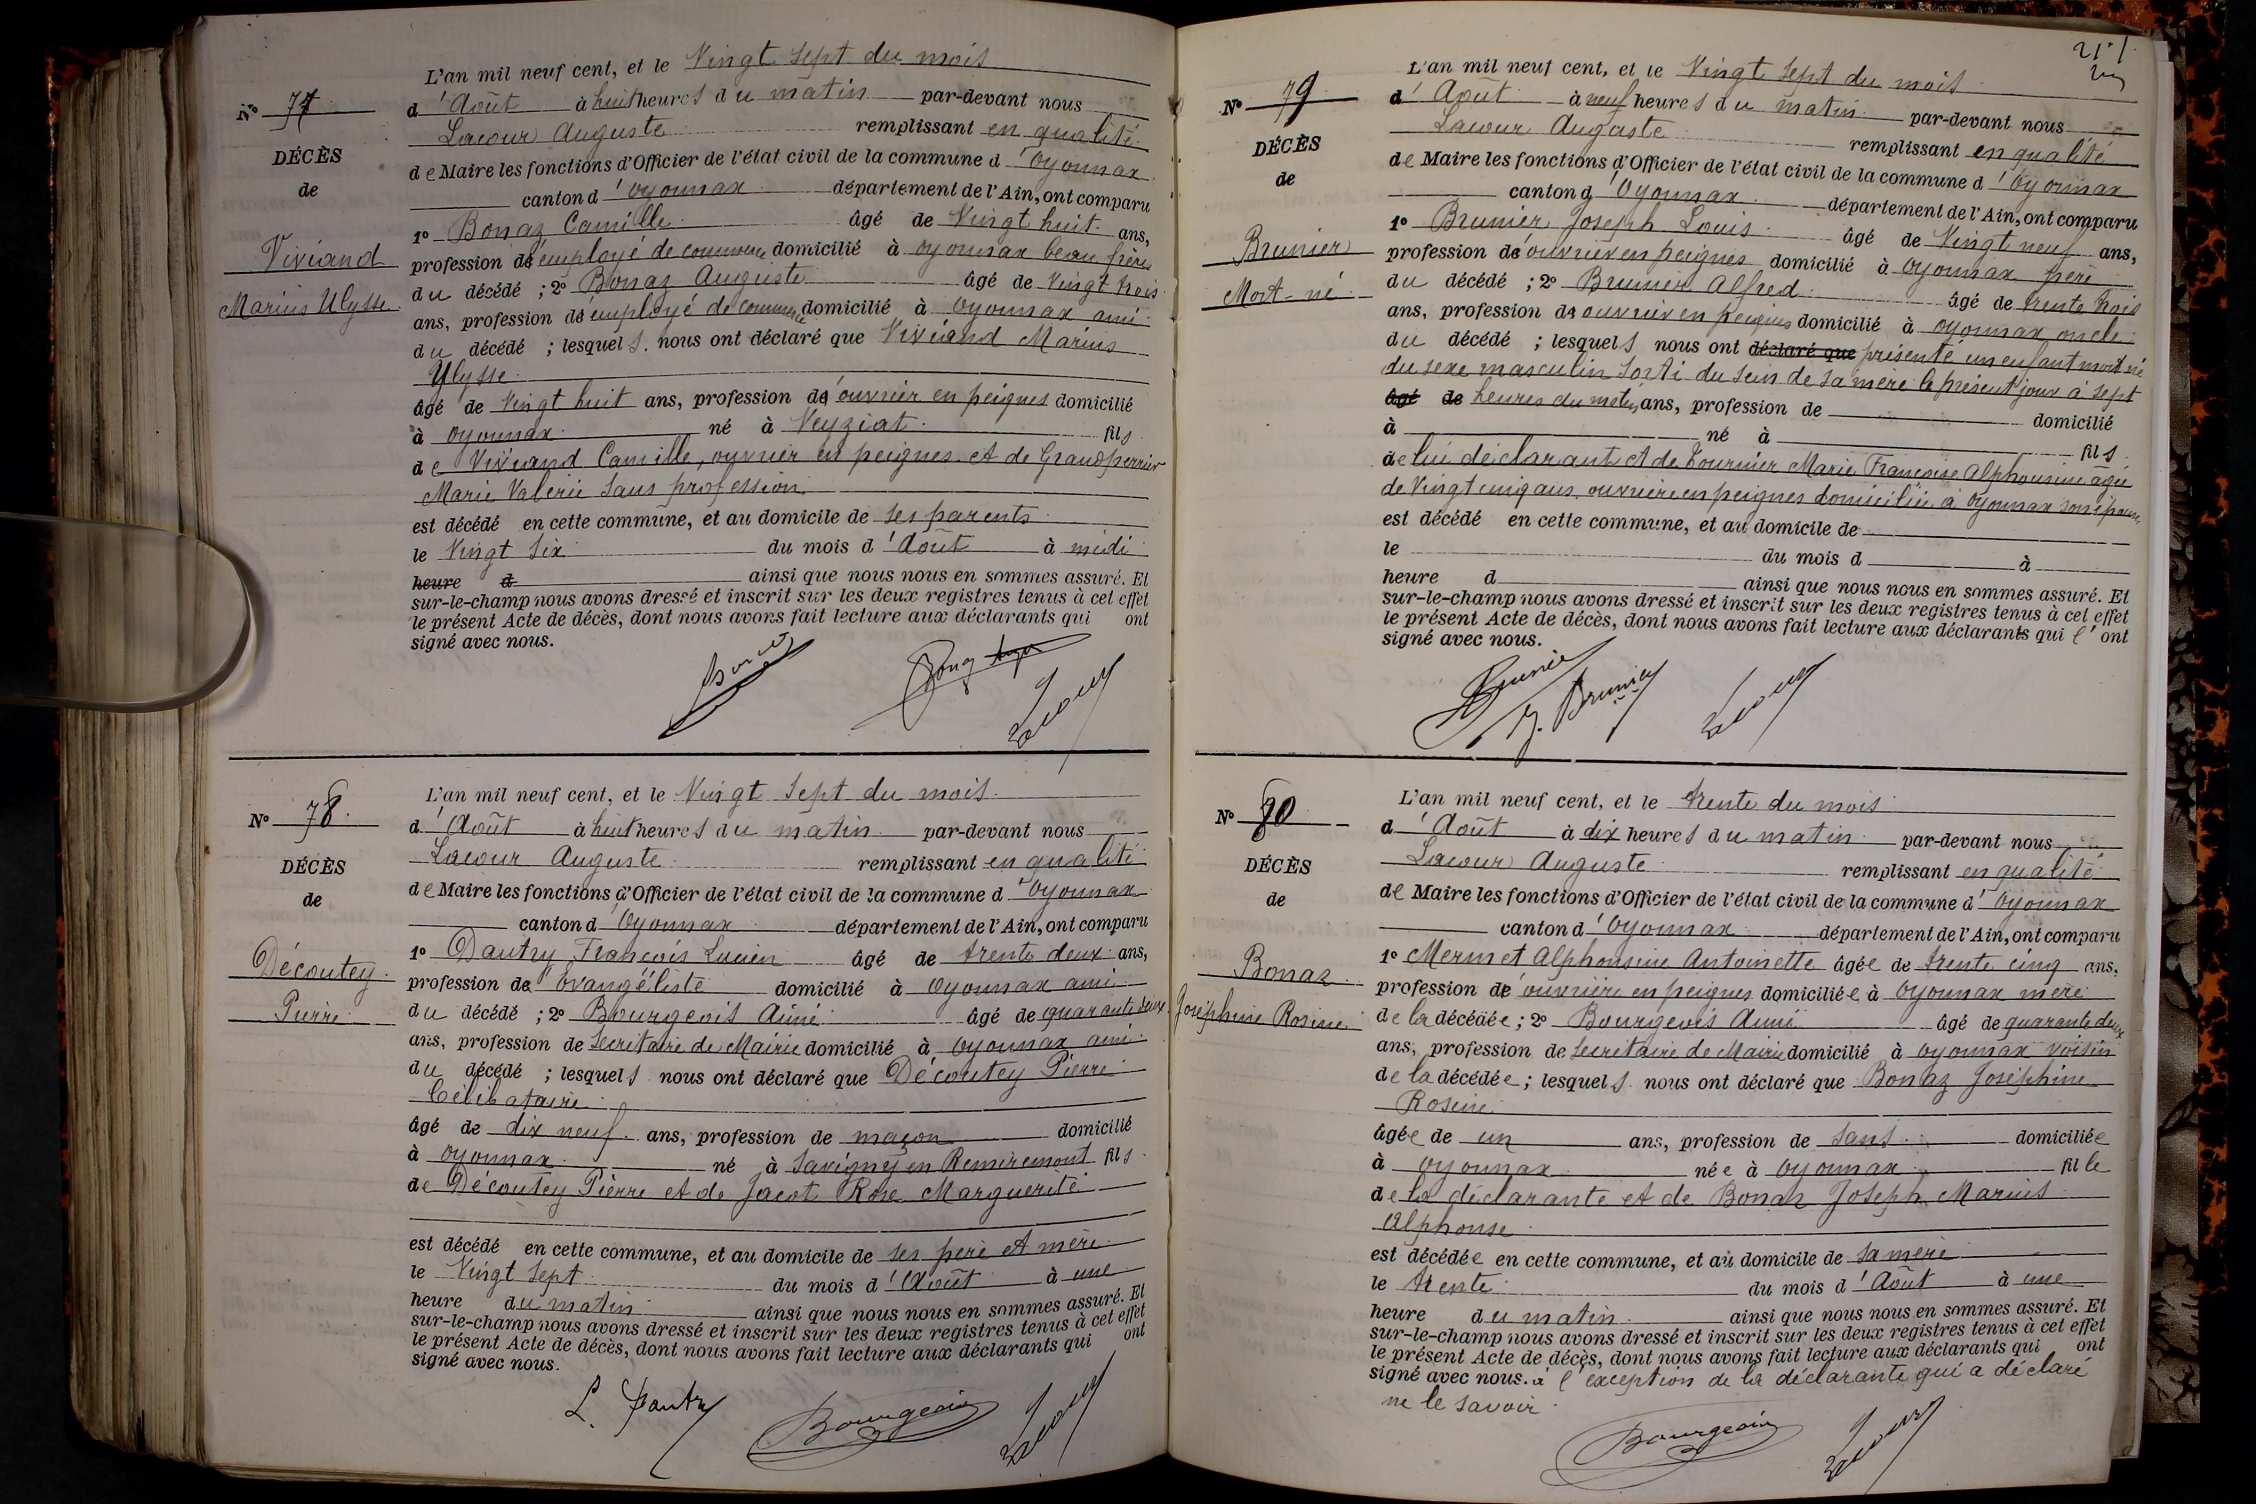 N° 77
DÉCÈS
de
Viviand
Marius Ulysse
L'an mil neuf cent, et le Vingt sept du mois
d'Août à huit heures du matin par-devant nous
Lacour Auguste remplissant en qualité
de Maire les fonctions d'Officier de l'état civil de la commune d'Oyonnax
canton d'Oyonnax département de l'Ain, ont comparu
1° Bonaz Camille âgé de Vingt huit ans,
profession d'employé de commerce domicilié à Oyonnax beau frère
du décédé ; 2° Bonaz Auguste âgé de Vingt trois
ans, profession d'employé de commerce domicilié à Oyonnax ami
du décédé ; lesquels nous ont déclaré que Viviand Marius
Ulysse
âgé de Vingt huit ans, profession d'ouvrier en peignes domicilié
à Oyonnax né à Veyziat fils
de Viviand Camille, ouvrier en peignes et de Grandperrier
Marie Valérie sans profession
est décédé en cette commune, et au domicile de ses parents
le Vingt six du mois d'Août à midi
heure d ainsi que nous nous en sommes assuré. Et
sur-le-champ nous avons dressé et inscrit sur les deux registres tenus à cet effet
le présent Acte de décès, dont nous avons fait lecture aux déclarants qui ont
signé avec nous.
Lacour
N° 78
DÉCÈS
de
Découtey
Pierre
L'an mil neuf cent, et le Vingt sept du mois
d'Août à huit heures du matin par-devant nous
Lacour Auguste remplissant en qualité
de Maire les fonctions d'Officier de l'état civil de la commune d'Oyonnax
canton d'Oyonnax département de l'Ain, ont comparu
1° Dautry François Lucien âgé de trente deux ans,
profession d'Évangéliste domicilié à Oyonnax ami
du décédé ; 2° Bourgeois Aimé âgé de quarante deux
ans, profession de Secrétaire de Mairie domicilié à Oyonnax ami
du décédé ; lesquels nous ont déclaré que Découtey Pierre
Célibataire
âgé de dix neuf ans, profession de maçon domicilié
à Oyonnax né à Savigny en Remiremont fils
de Découtey Pierre et de Jacot Rose Marguerite
est décédé en cette commune, et au domicile de ses père et mère
le Vingt sept du mois d'Août à une
heure du matin ainsi que nous nous en sommes assuré. Et
sur-le-champ nous avons dressé et inscrit sur les deux registres tenus à cet effet
le présent Acte de décès, dont nous avons fait lecture aux déclarants qui ont
signé avec nous.
L. Dautry Bourgeois Lacour
N° 79
DÉCÈS
de
Brunier
Mort-né
L'an mil neuf cent, et le Vingt sept du mois
d'Août à neuf heures du matin par-devant nous
Lacour Auguste remplissant en qualité
de Maire les fonctions d'Officier de l'état civil de la commune d'Oyonnax
canton d'Oyonnax département de l'Ain, ont comparu
1° Brunier Joseph Louis âgé de Vingt neuf ans,
profession d'ouvrier en peignes domicilié à Oyonnax père
du décédé ; 2° Brunier Alfred âgé de trente trois
ans, profession d'ouvrier en peignes domicilié à Oyonnax oncle
du décédé ; lesquels nous ont déclaré que présenté un enfant mort né
du sexe masculin sorti du sein de sa mère le présent jour à sept
âgé de heures du matin, ans, profession de domicilié
à né à fils
de lui déclarant et de Tournier Marie Françoise Alphonsine âgée
de Vingt cinq ans, ouvrière en peignes domiciliée à Oyonnax son épouse
est décédé en cette commune, et au domicile de
le du mois d à
heure d ainsi que nous nous en sommes assuré. Et
sur-le-champ nous avons dressé et inscrit sur les deux registres tenus à cet effet
le présent Acte de décès, dont nous avons fait lecture aux déclarants qui l'ont
signé avec nous.
Brunier J. Brunier Lacour
N° 80
DÉCÈS
de
Bonaz
Joséphine Rosine
L'an mil neuf cent, et le trente du mois
d'Août à dix heures du matin par-devant nous
Lacour Auguste remplissant en qualité
de Maire les fonctions d'Officier de l'état civil de la commune d'Oyonnax
canton d'Oyonnax département de l'Ain, ont comparu
1° Mermet Alphonsine Antoinette âgée de trente cinq ans,
profession d'ouvrière en peignes domiciliée à Oyonnax mère
de la décédée ; 2° Bourgeois Aimé âgé de quarante deux
ans, profession de Secrétaire de Mairie domicilié à Oyonnax voisin
de la décédée ; lesquels nous ont déclaré que Bonaz Joséphine
Rosine
âgée de un ans, profession de sans domiciliée
à Oyonnax née à Oyonnax fille
de la déclarante et de Bonaz Joseph Marius
Alphonse
est décédée en cette commune, et au domicile de sa mère
le trente du mois d'Août à une
heure du matin ainsi que nous nous en sommes assuré. Et
sur-le-champ nous avons dressé et inscrit sur les deux registres tenus à cet effet
le présent Acte de décès, dont nous avons fait lecture aux déclarants qui ont
signé avec nous. à l'exception de la déclarante qui a déclaré
ne le savoir
Bourgeois Lacour